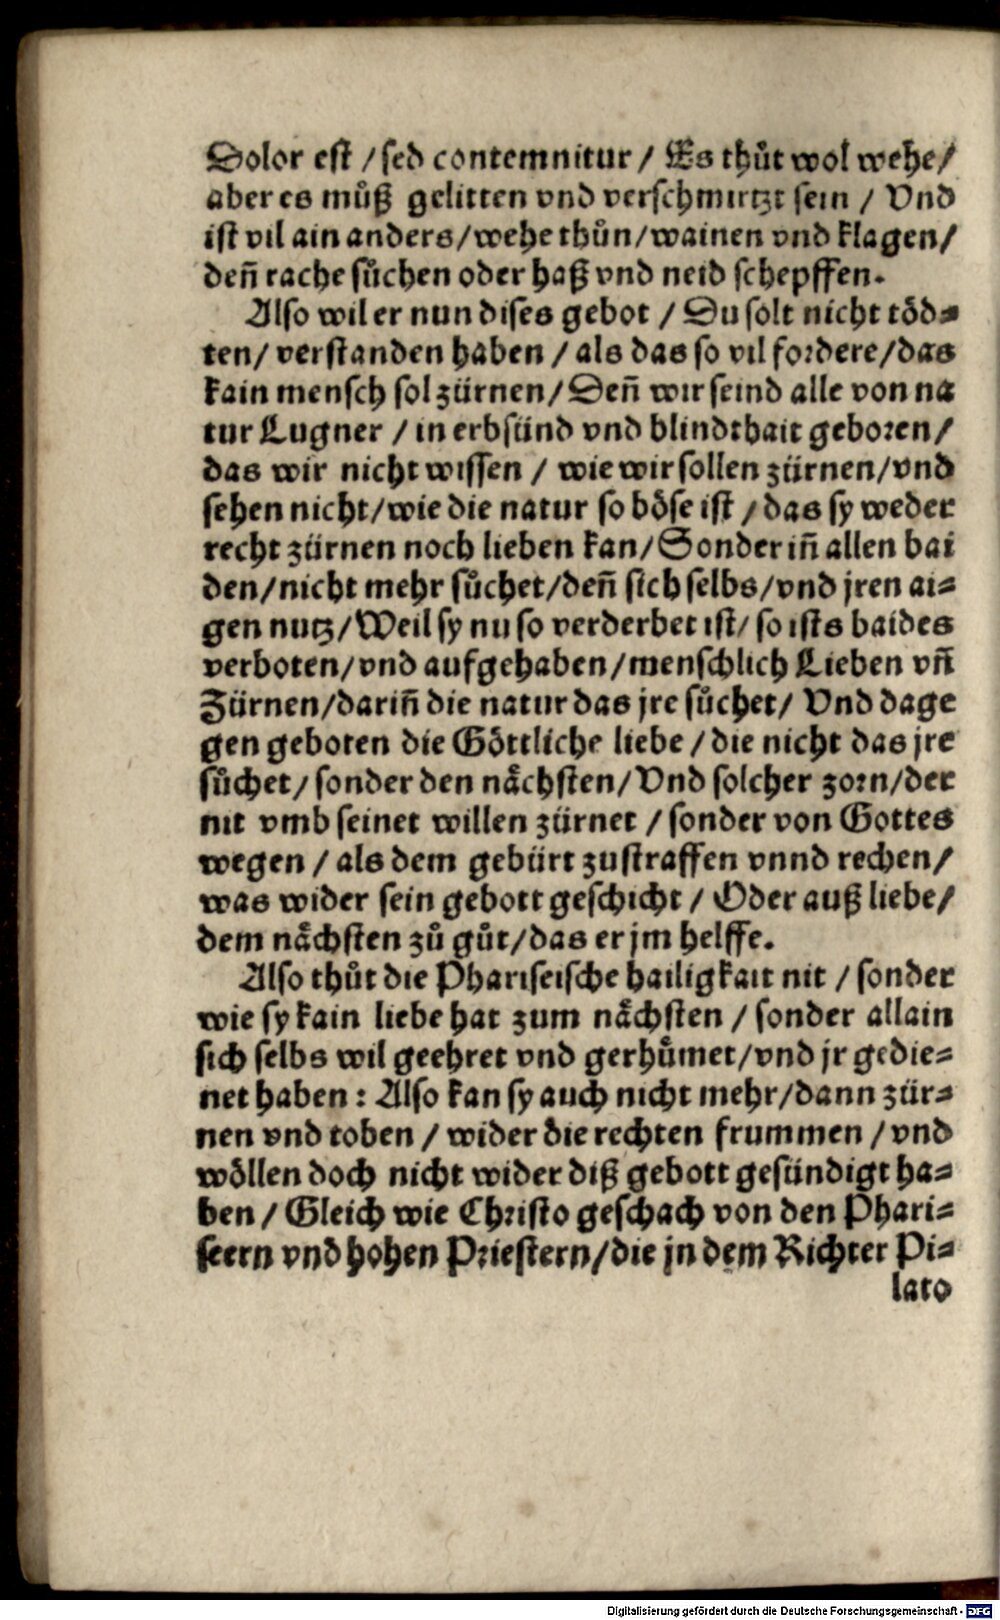 Dolor est / sed contemnitur / Es thůt wol wehe /
aber es můß gelitten vnd verschmirtzt sein / Vnd
ist vil ain anders / wehe thůn / wainen vnd klagen /
deñ rache sůchen oder haß vnd neid schepffen.
Also wil er nun dises gebot / Du solt nicht töd⸗
ten / verstanden haben / als das so vil fordere / das
kain mensch sol zürnen / Deñ wir seind alle von na
tur Lugner / in erbsünd vnd blindthait geboren /
das wir nicht wissen / wie wir sollen zürnen / vnd
sehen nicht / wie die natur so böse ist / das sy weder
recht zürnen noch lieben kan / Sonder iñ allen bai
den / nicht mehr sůchet / deñ sich selbs / vnd jren ai⸗
gen nutz / Weil sy nu so verderbet ist / so ists baides
verboten / vnd aufgehaben / menschlich Lieben vñ
Zürnen / dariñ die natur das jre sůchet / Vnd dage
gen geboten die Göttliche liebe / die nicht das jre
sůchet / sonder den nächsten / Vnd solcher zorn / der
nit vmb seinet willen zürnet / sonder von Gottes
wegen / als dem gebürt zustraffen vnnd rechen /
was wider sein gebott geschicht / Oder auß liebe /
dem nächsten zů gůt / das er jm helffe.
Also thůt die Phariseische hailigkait nit / sonder
wie sy kain liebe hat zum nächsten / sonder allain
sich selbs wil geehret vnd gerhůmet / vnd jr gedie⸗
net haben : Also kan sy auch nicht mehr / dann zür⸗
nen vnd toben / wider die rechten frummen / vnd
wöllen doch nicht wider diß gebott gesündigt ha⸗
ben / Gleich wie Christo geschach von den Phari⸗
seern vnd hohen Priestern / die jn dem Richter Pi⸗
lato
Digitalisierung gefördert durch die Deutsche Forschungsgemeinschaft - DFG